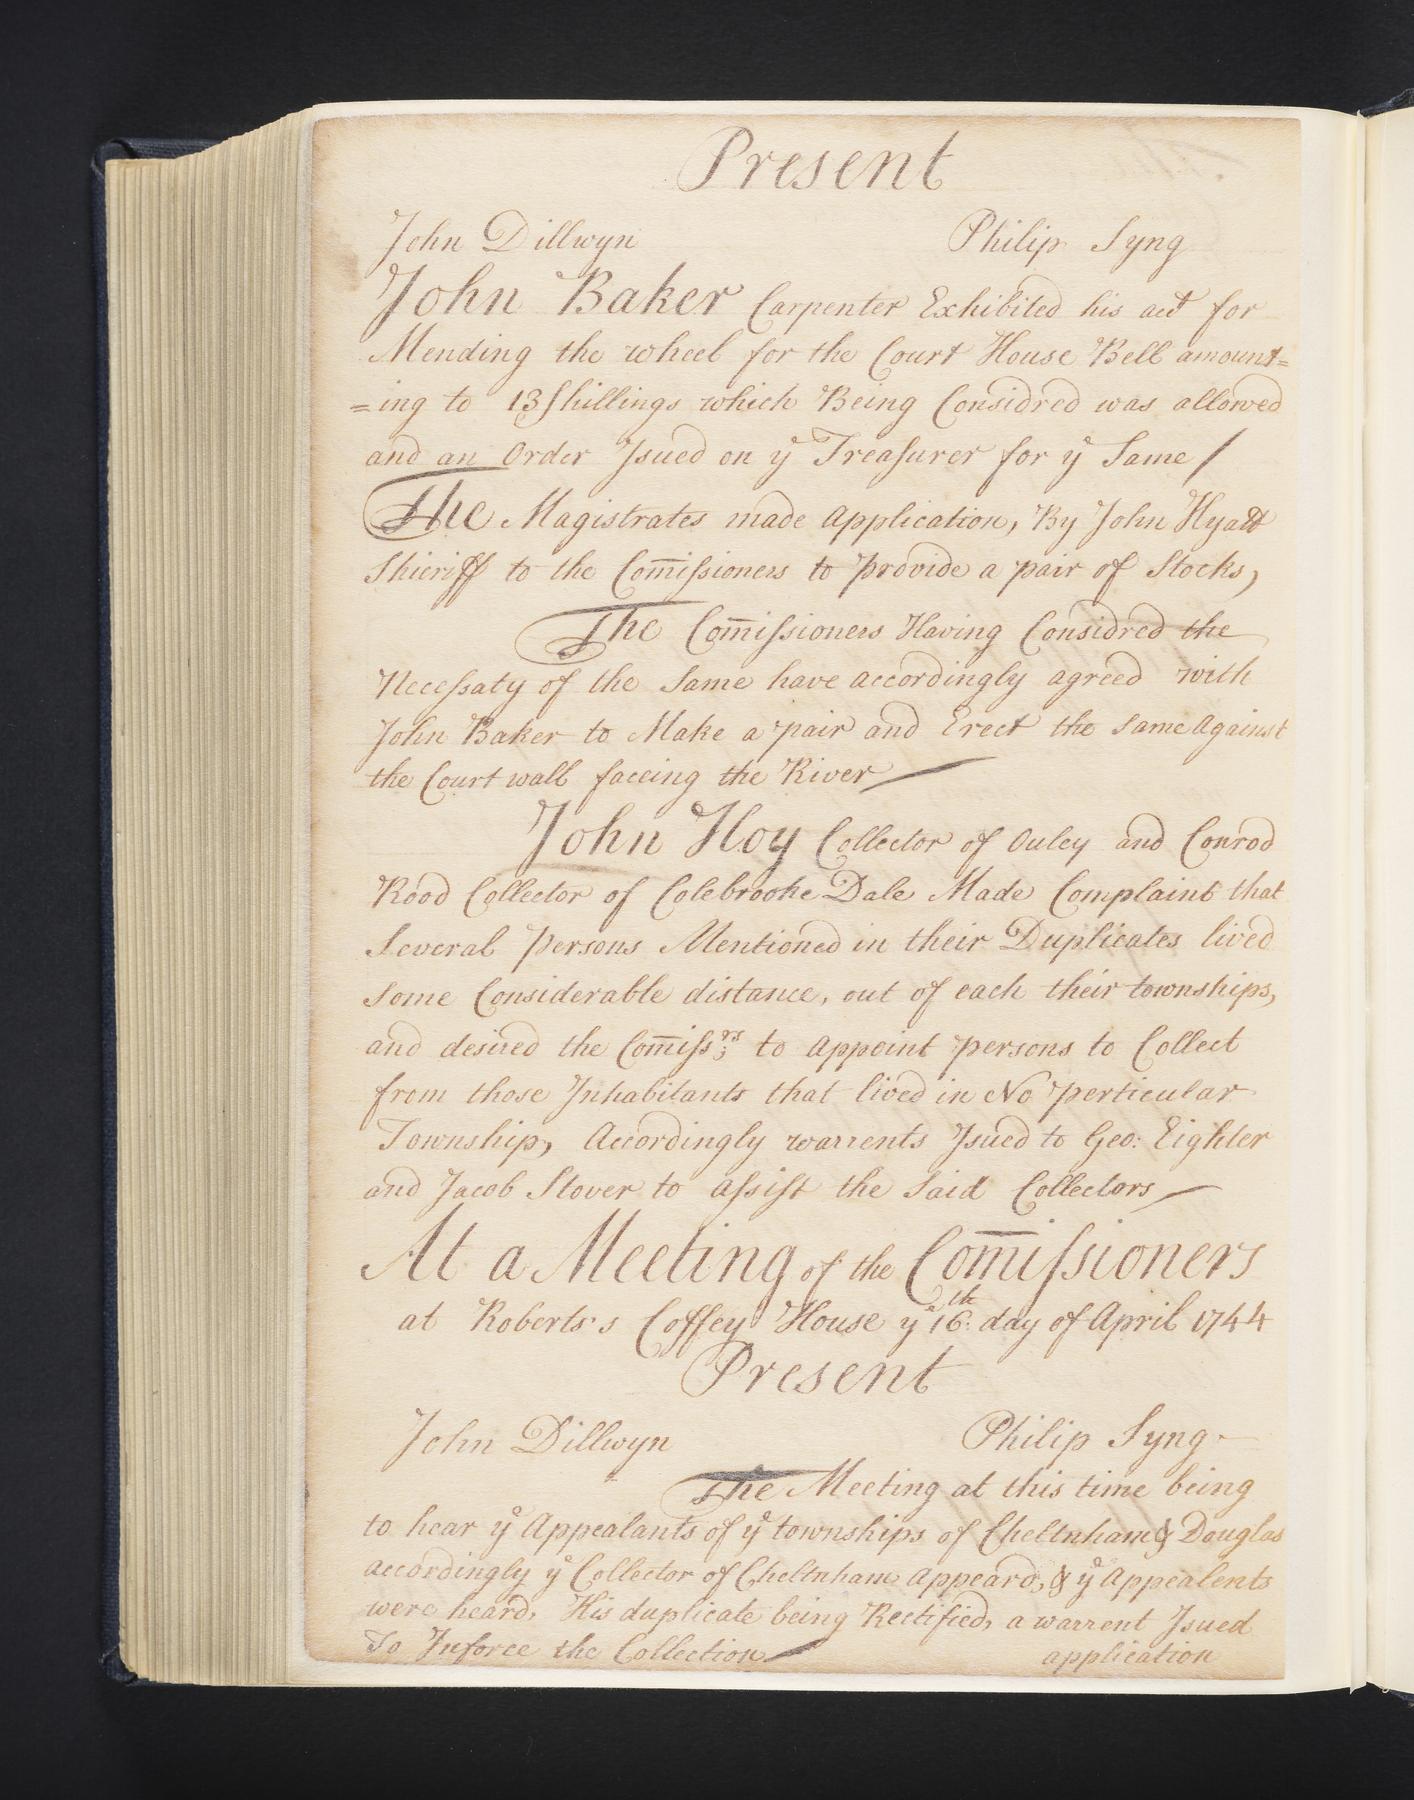 Present
John Dillwyn Philip Syng
John Baker Carpenter Exhibited his acct for
Mending the wheel for the Court House Bell amount=
=ing to 13 Shillings which Being Considred was allowed
and an Order Isued on ye Treasurer for ye Same /
The Magistrates made Application, By John Hyatt
Shieriff to the Com̄issioners to provide a pair of Stocks,
The Com̄issioners Having Considred the
Necessaty of the Same have accordingly agreed with
John Baker to Make a pair and Erect the Same Against
the Court wall faceing the River
John Hoy Collector of Ouley and Conrod
Rood Collector of Colebrooke Dale Made Complaint that
Several Persons Mentioned in their Duplicates lived
Some Considerable distance, out of each their townships,
and desired the Com̄issrs to Appoint persons to Collect
from those Inhabitants that lived in No perticular
Township, Accordingly warrents Isued to Geo: Eighler
and Jacob Stover to assist the Said Collectors
At a Meeting of the Com̄issioners
at Roberts's Coffey House ye 16th day of April 1744
Present
John Dillwyn Philip Syng
The Meeting at this time being
to hear ye Appealants of ye townships of Cheltnham & Douglas
accordingly ye Collector of Cheltnham Appeard, & ye Appealents
were heard, His duplicate being Rectified, a warrent Isued
To Inforce the Collection
application